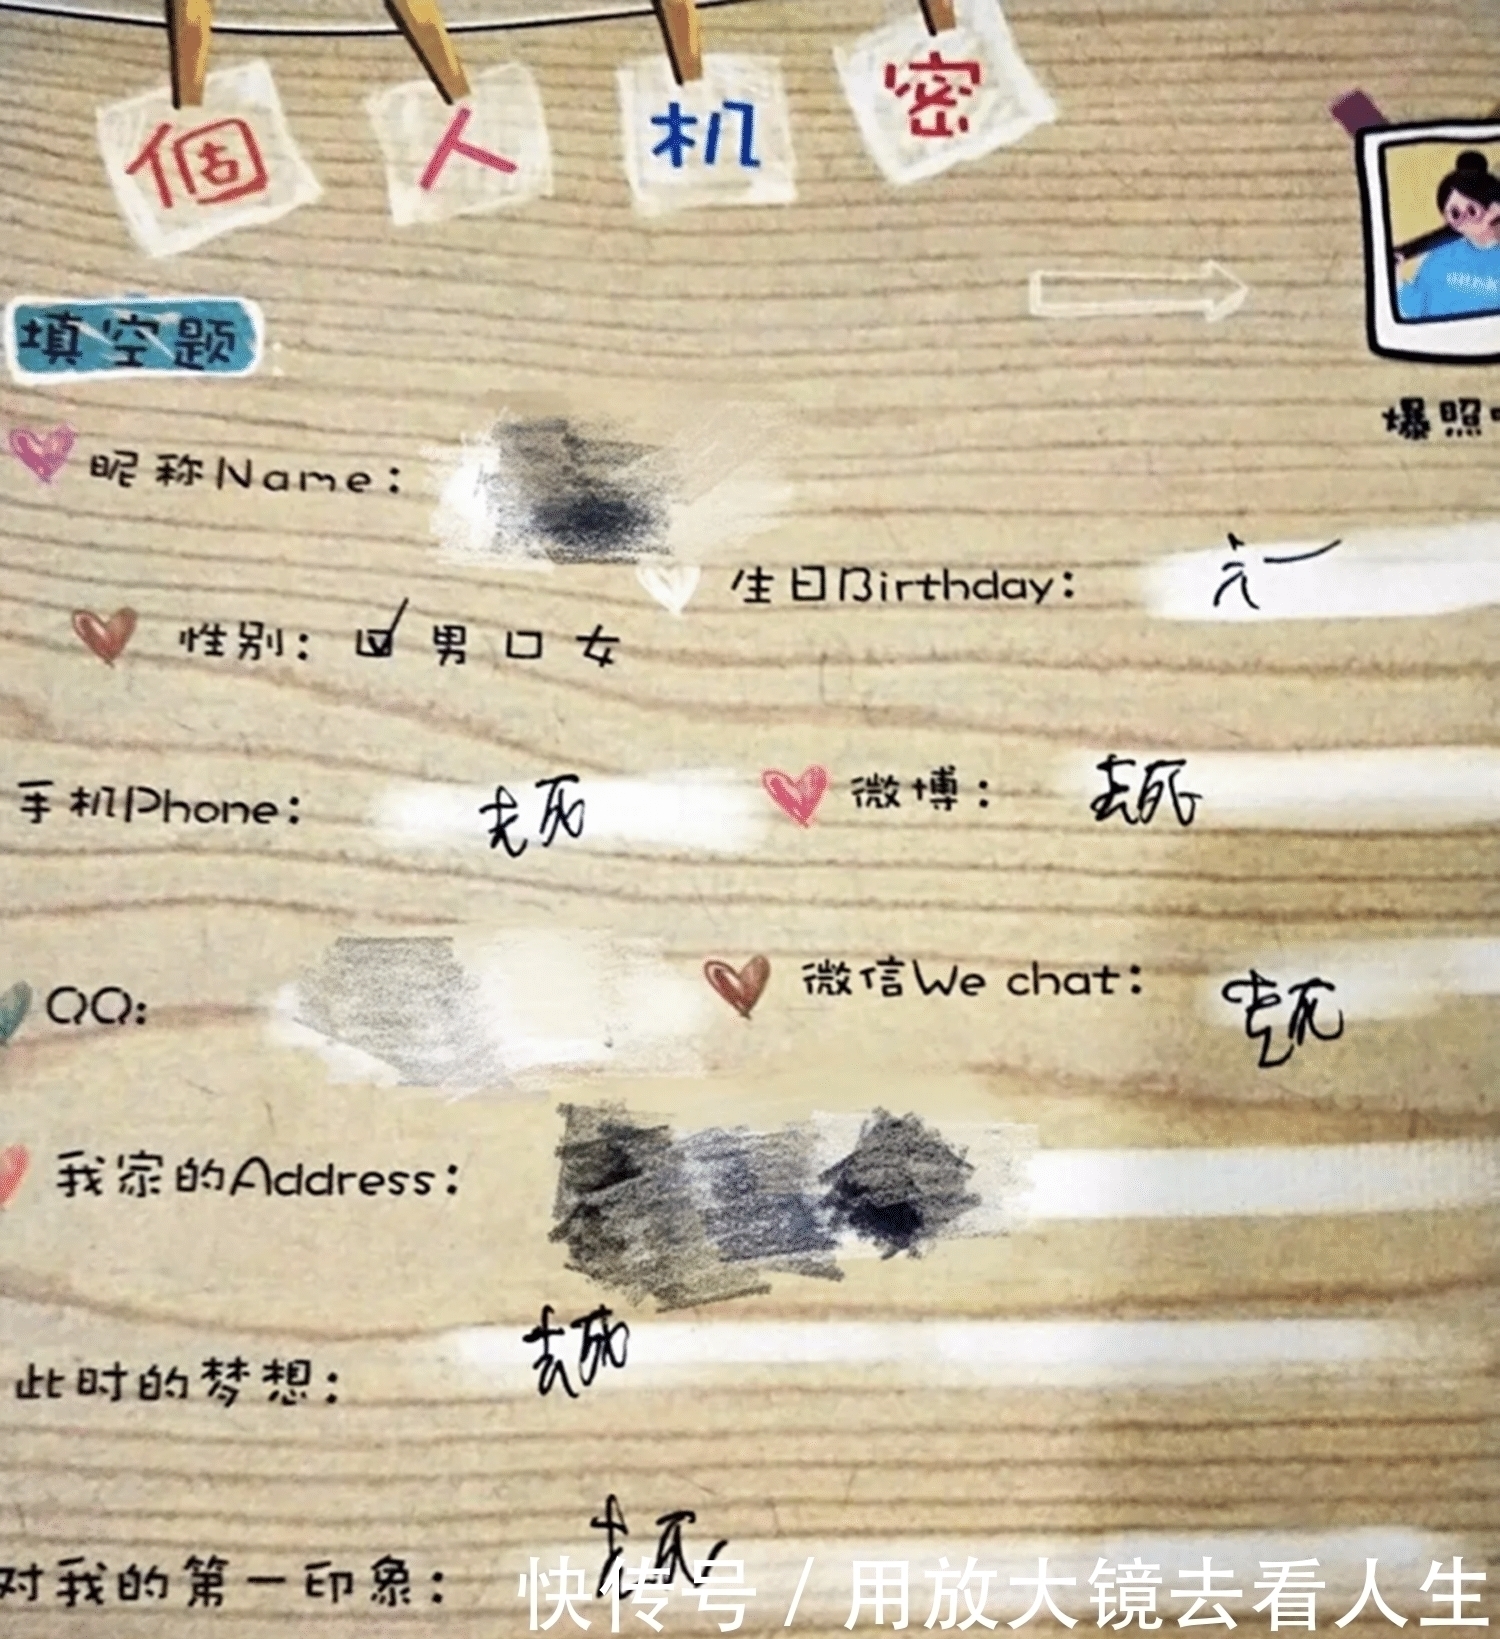 個人机密
填空题:
爆照
昵称Name:
生日Birthday: 六一
性别: ☑男 口女
手机Phone: 去死
微博: 去死
QQ:
微信We chat: 去死
我家的Address:
此时的梦想: 去死
对我的第一印象: 去死
快传号/用放大镜去看人生